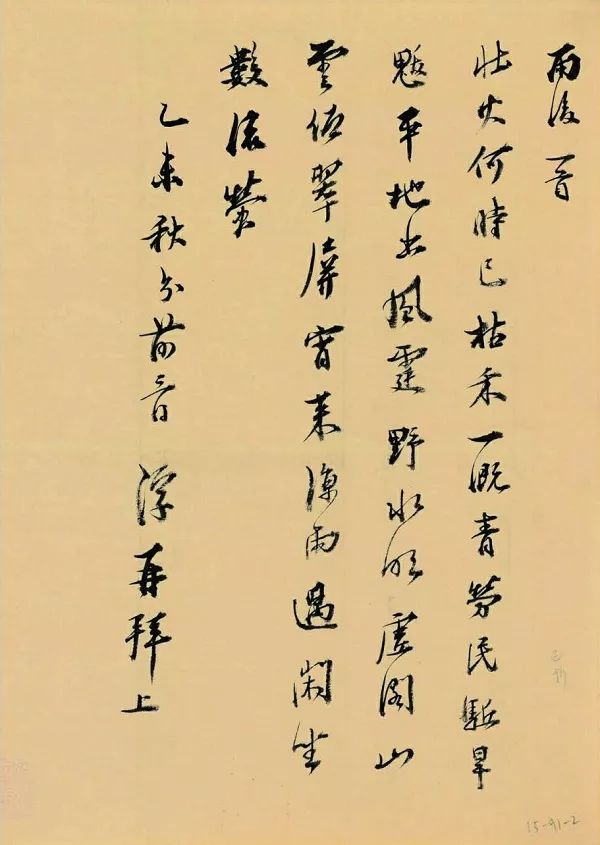 雨後一首
壯火何時已枯禾一溉青勞民驅旱
魃平地出風霆野水明虛閣山
雲翠屏宵來涼雨過閑坐
數流螢
乙未秋分前日 浮再拜上
15-91-2